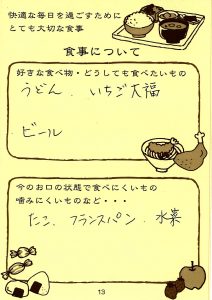 快適な毎日を過ごすために
とても大切な食事
食事について
好きな食べ物・どうしても食べたいもの
うどん、いちご大福
ビール
今のお口の状態で食べにくいもの
噛みにくいものなど・・・
たこ、フランスパン、水菜
13